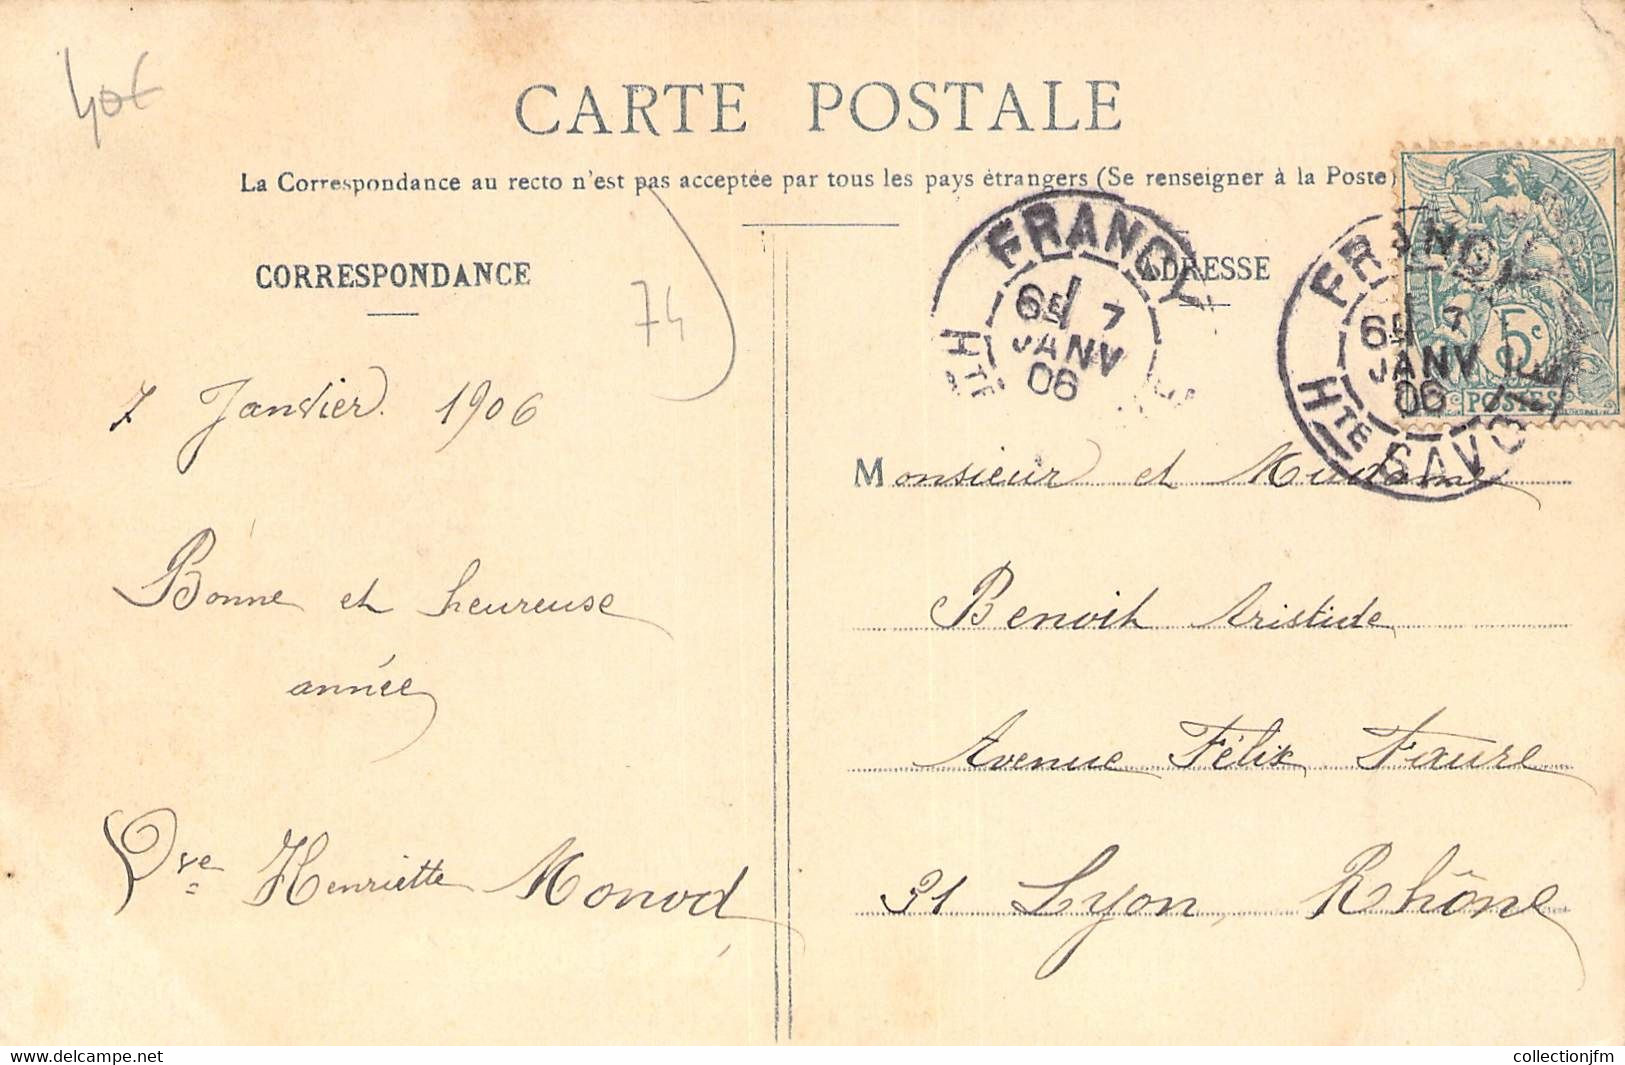 40€
CARTE POSTALE
La Correspondance au recto n'est pas acceptée par tous les pays étrangers (Se renseigner à la Poste)
CORRESPONDANCE
ADRESSE
74
FRANGY
6E 7
JANV
06
HTE
FRANGY
6E 7
JANV
06
HTE SAVOIE
FRANÇAISE
5c
POSTES
7 Janvier 1906
Bonne et heureuse
année
Vve Henriette Monod
Monsieur et Madame
Benoit Aristide
Avenue Félix Faure
31 Lyon, Rhône
delcampe.net
collectionjfm